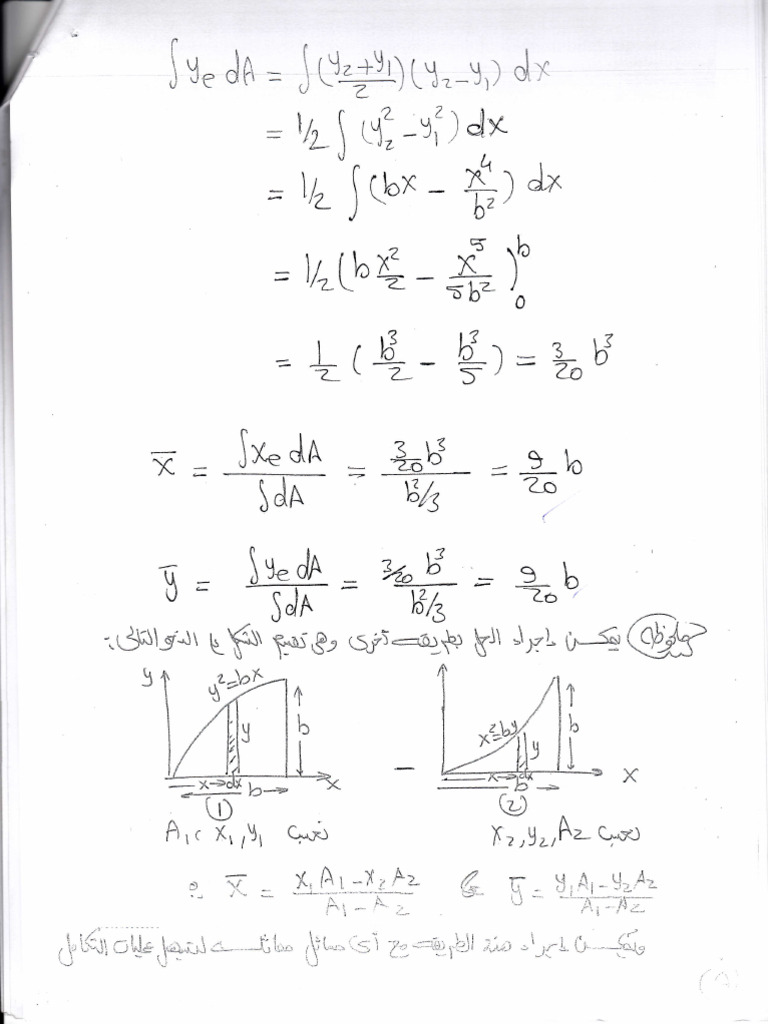 ∫ yₑ dA = ∫ (y₂+y₁)/2 (y₂−y₁) dx
= 1/2 ∫ (y₂² − y₁²) dx
= 1/2 ∫ (bx − x⁴/b²) dx
= 1/2 (b x²/2 − x⁵/5b²)₀ᵇ
= 1/2 (b³/2 − b³/5) = 3/20 b³
x̄ = ∫xₑ dA / ∫dA = 3/20 b³ / b²/3 = 9/20 b
ȳ = ∫yₑ dA / ∫dA = 3/20 b³ / b²/3 = 9/20 b
ملحوظة يمكن إجراء الحل بطريقة أخرى وهى تقسيم الشكل على النحو التالى:
y y²=bx y b x→dx b x (1)
−
x²=by y b x→dx b x (2)
نحسب A₁, x₁, y₁
نحسب x₂, y₂, A₂
∴ x̄ = x₁A₁ − x₂A₂ / A₁ − A₂ & ȳ = y₁A₁ − y₂A₂ / A₁ − A₂
ويمكن إجراء هذه الطريقة مع أى مسائل مماثلة لتسهيل عمليات التكامل